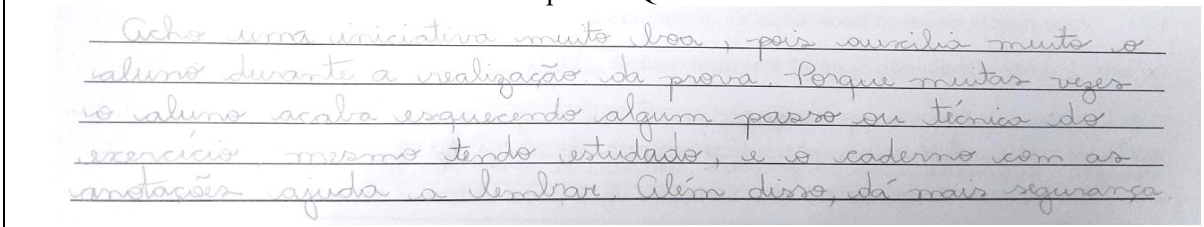 Acho uma iniciativa muito boa, pois auxilia muito o
aluno durante a realização da prova. Porque muitas vezes
o aluno acaba esquecendo algum passo ou técnica do
exercício, mesmo tendo estudado, e o caderno com as
anotações ajuda a lembrar. Além disso, dá mais segurança.